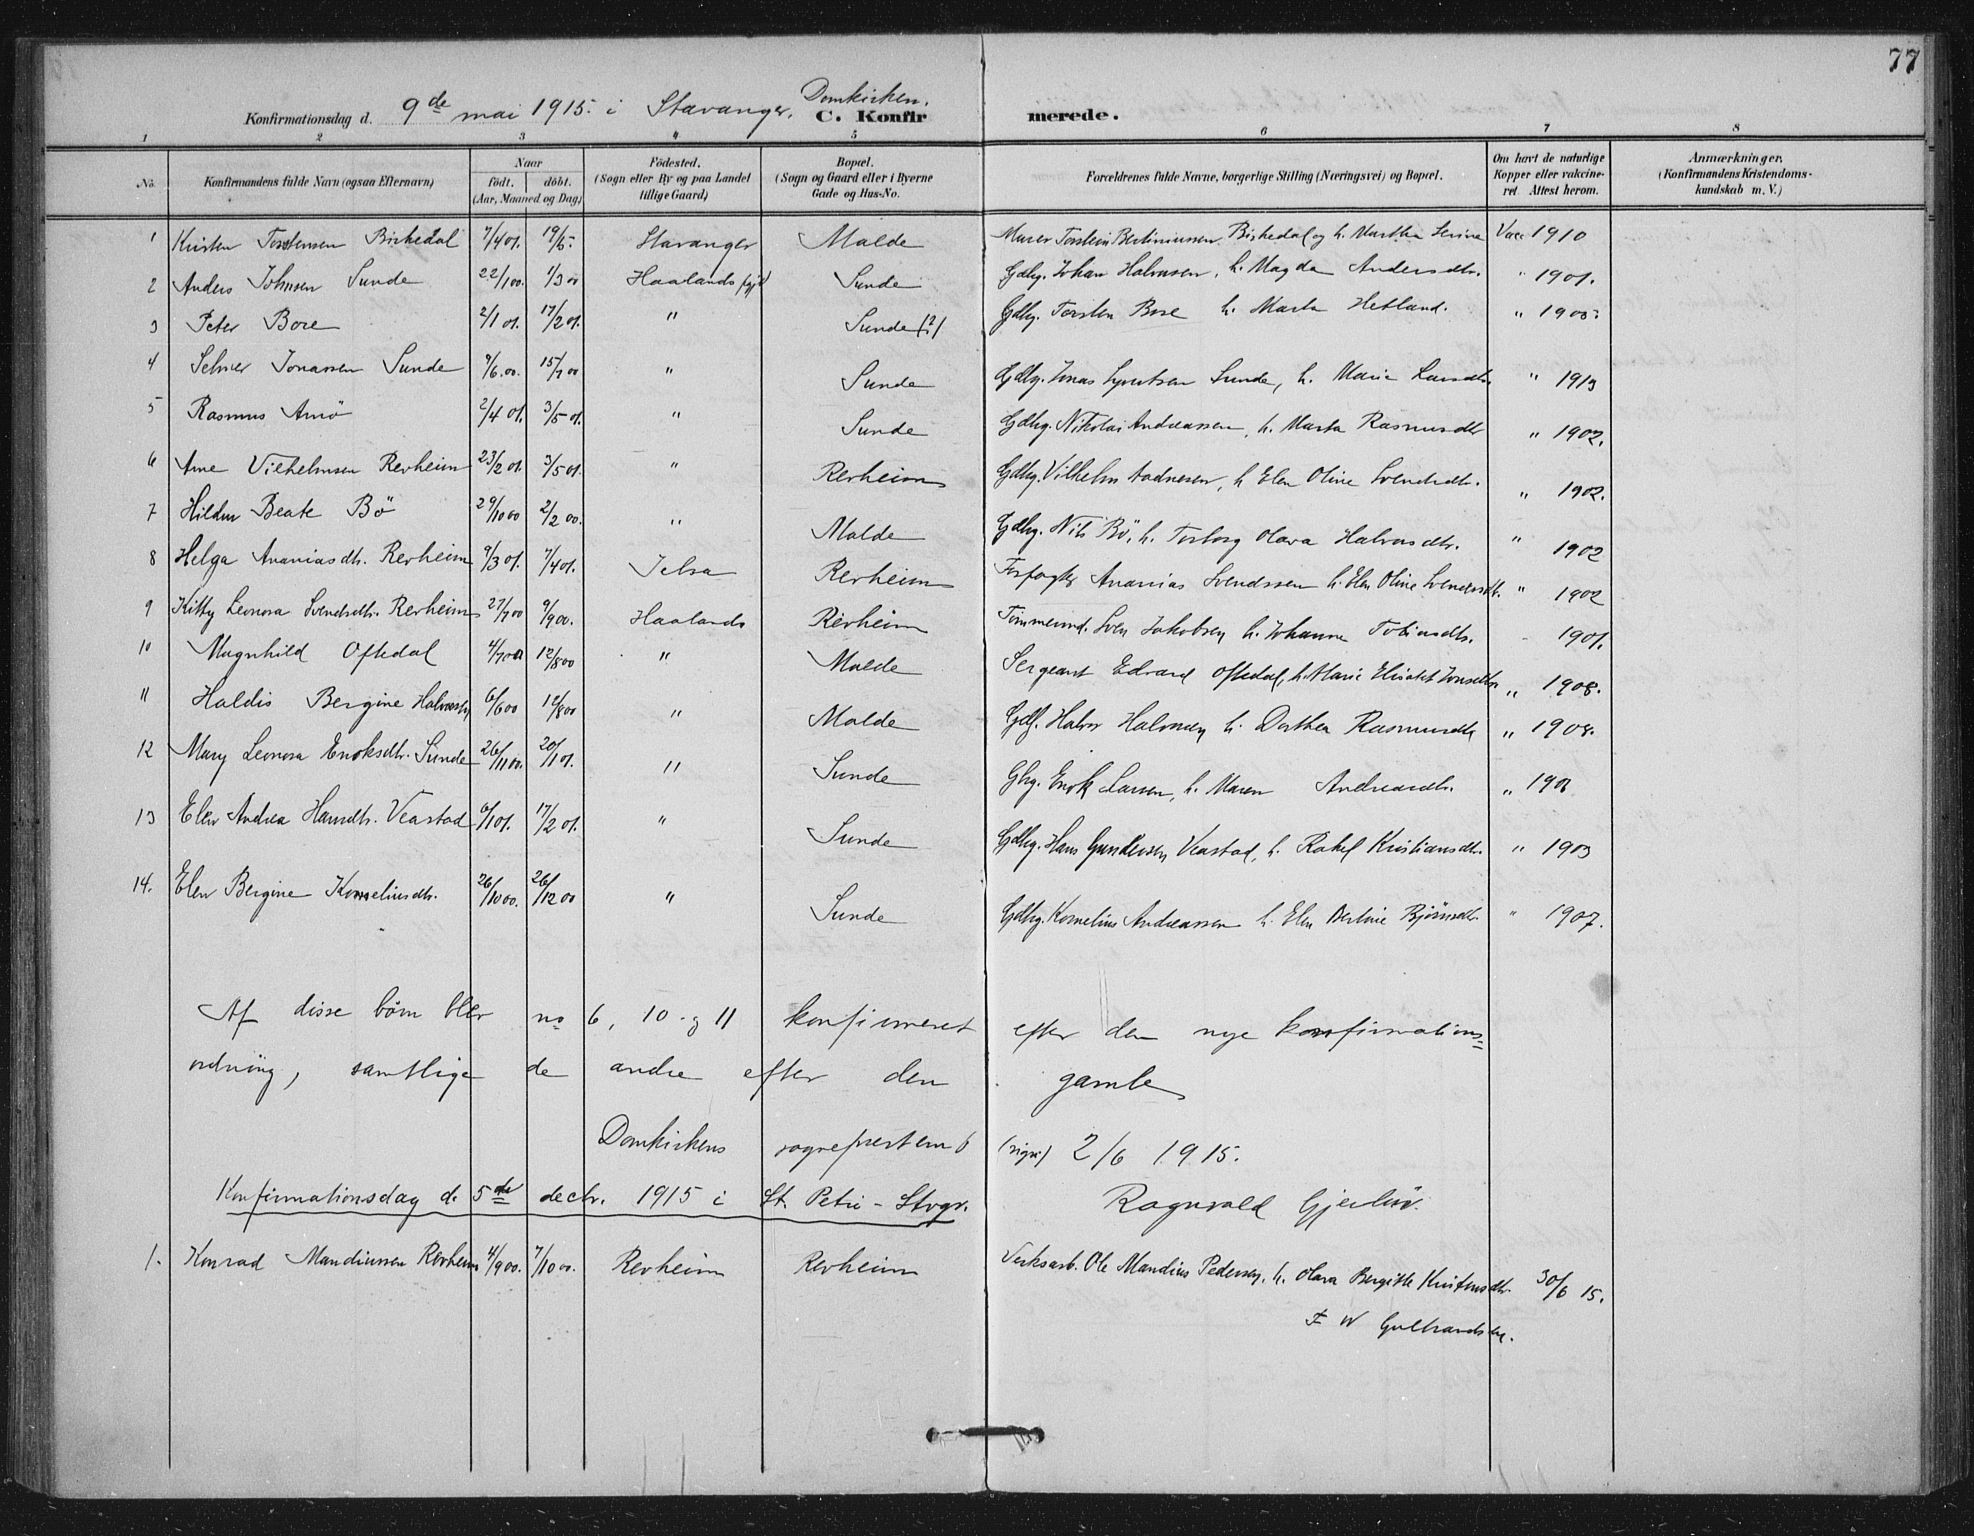 77
Konfirmationsdag d. 9de mai 1915. i Stavanger, Domkirken. C. Konfirmerede.
1 2 3 4 5 6 7 8
No. Konfirmandens fulde Navn (ogsaa Efternavn) Naar født. døbt. (Aar, Maaned og Dag) Fødested. (Sogn eller By og paa Landet tillige Gaard) Bopæl. (Sogn og Gaard eller i Byerne Gade og Hus-No. Forældrenes fulde Navne, borgerlige Stilling (Næringsvei) og Bopæl. Om havt de naturlige Kopper eller vakcineret. Attest herom. Anmærkninger. (Konfirmandens Kristendomskundskab m. V.)
1 Kristen Torstensen Birkedal 7/4 01. 19/5 Stavanger Malde Murer Torstein Bertiniussen Birkedal og h. Martha Serine Vac. 1910
2 Anders Johnsen Sunde 22/1 00. 1/3 00 Haalands Sunde Gdbg. Johan Halvorsen, h. Magda Andersdtr. " 1901.
3 Peter Bore 2/1 01. 17/2 01. " Sunde (?) Gdbg. Torsten Bore h. Marta Hetland. "
4 Selmer Jonassen Sunde 9/6.00. 15/7 00 " Sunde Gdbg. Jonas Syvertsen Sunde, h. Marie Larsdtr. " 1913
5 Rasmus Amø 2/4 01. 3/5 01. " Sunde Gdbg. Nikolai Andreassen, h. Marta Rasmusdtr " 1902.
6 Arne Vilhelmsen Revheim 23/2 01. 3/5 01. " Revheim Gdbg. Vilhelm Aadnesen, h Elen Oline Svendsdtr. " 1902.
7 Hilda Beate Bø 29/10 00 2/2 00. " Malde Gdbg. Nils Bø, h. Torborg Olava Halvorsdtr. " 1902
8 Helga Ananiasdtr. Revheim 9/3 01. 7/4 01. Jelsa Revheim Forpagter Ananias Svendssen h. Elen Oline Svendsdtr. " 1902
9 Kitty Leonora Svendsdtr. Revheim 27/7 00 9/9 00. Haalands Revheim Tømmermd. Sven Jakobsen h. Johanne Tobiasdtr. " 1901.
10 Magnhild Oftedal 4/7 00 12/8 00 " Malde Sergeant Edvard Oftedal, h. Marie Elisabet Jonsdtr. " 1908.
11 Haldis Bergine Halvorsdtr 6/6 00 12/8 00 " Malde Gdb. Halvor Halvorsen h. Dorthea Rasmusdtr " 1908.
12 Mary Leonora Enoksdtr. Sunde 26/11 00. 20/1 01. " Sunde Gbg. Enok Larsen, h. Maren Andreasdtr. "
13 Elen Andrea Hansdtr. Veastad 6/1 01. 17/2 01. " Sunde Gdbg. Hans Gundersen Veastad, h. Rakel Kristiansdtr. " 1903
14. Elen Bergine Korneliusdtr. 26/10 00. 26/12 00 " Sunde Gdbg. Kornelius Andreassen h. Elen Bertine Bjørnsdtr. " 1907.
Af disse børn blev no 6, 10 og 11 konfirmeret efter den nye konfirmations=
ordning, samtlige de andre efter den gamle
Domkirkens sogneprestemb (sign) 2/6 1915.
Ragnvald Gjerløv.
Konfirmationsdag d. 5te decbr. 1915 i St. Petri - Stvgr.
1. Konrad Mandiussen Revheim 4/9 00. 7/10 00. Revheim Revheim Verksarb. Ole Mandius Pedersen, h. Olava Bergitte Kristensdtr. 30/6 15.
F W Gulbrandsen.